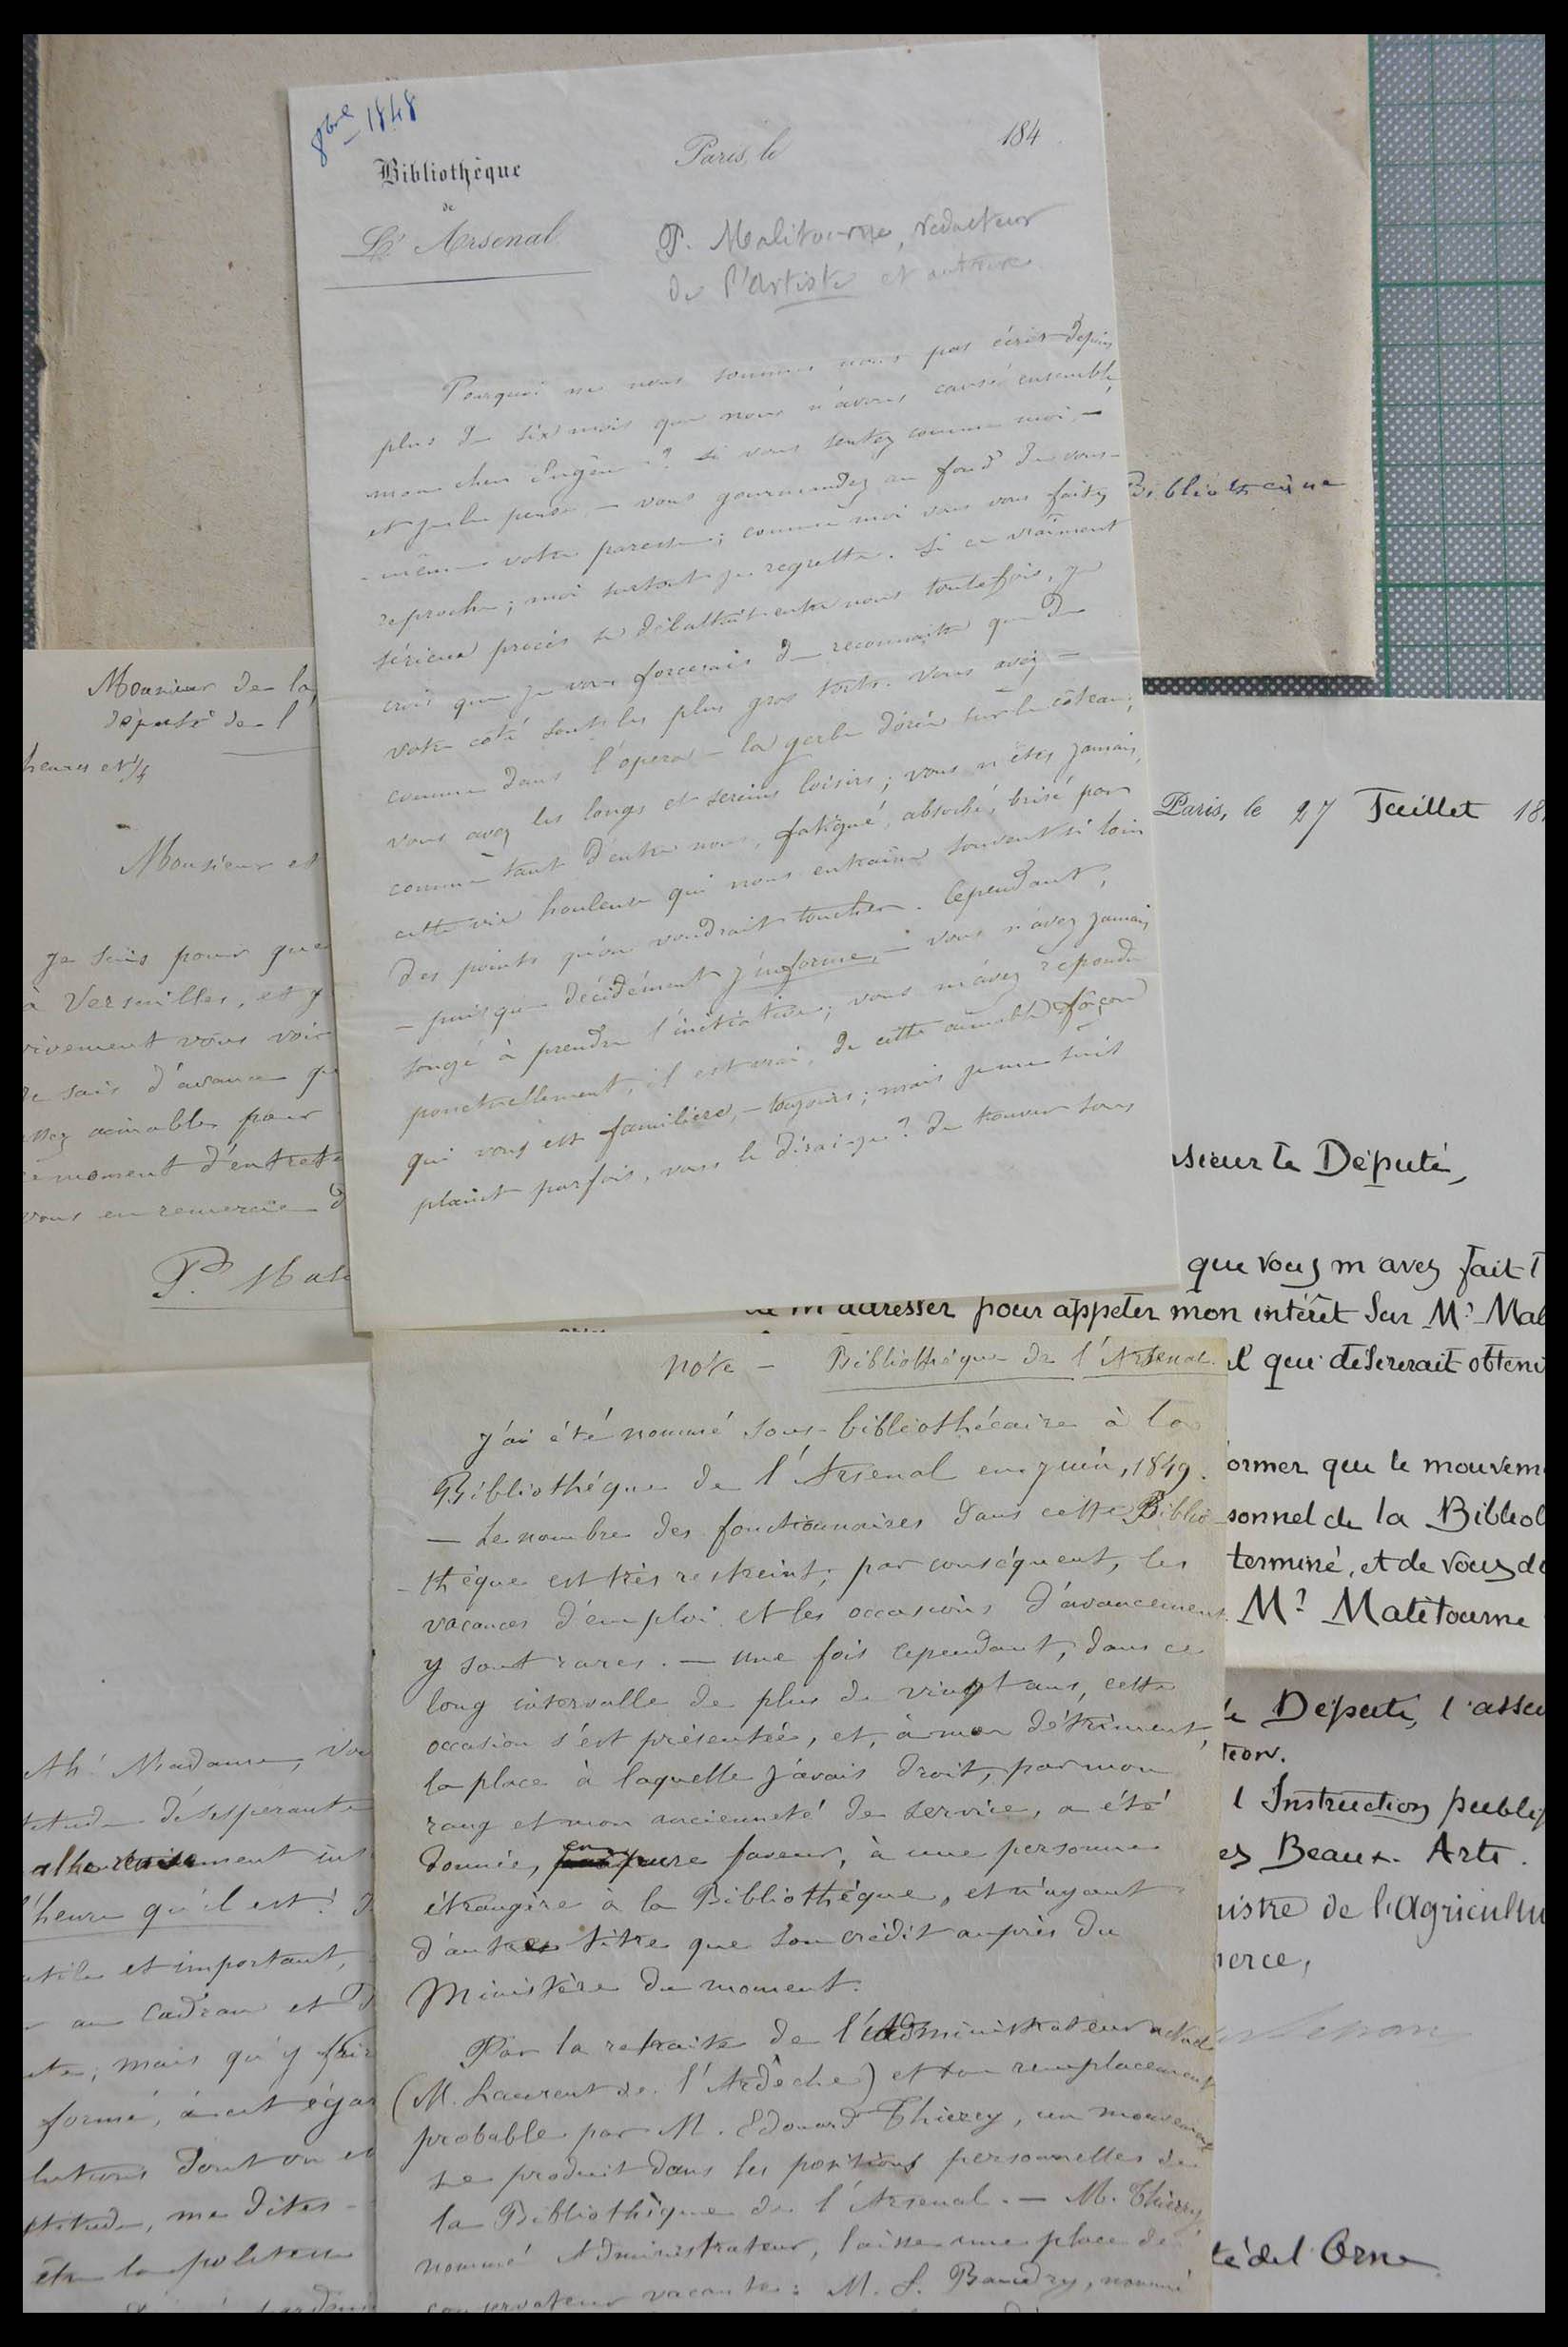 8bre 1848
Bibliothèque
de
L'Arsenal
Paris, le 184
P. Malitourne, rédacteur
de l'Artiste et
Pourquoi ne nous sommes nous pas écrit depuis
plus de six mois que nous n'avons causé ensemble,
mon cher Eugène ? Si vous sentez comme moi, —
et je le pense — vous gourmandez au fond de vous-
-même votre paresse ; comme moi vous vous faites
reproche ; moi surtout je regrette. Si ce vraiment
sérieux procès se débattait entre nous toutefois, je
crois que je vous forcerais de reconnaître que de
votre côté sont les plus gros torts. Vous avez —
comme dans l'opéra — la gerbe dorée sur le côteau ;
vous avez les longs et sereins loisirs ; vous n'êtes jamais,
comme tant d'entre nous, fatigué, absorbé, brisé par
cette vie houleuse qui nous entraîne souvent si loin
des points qu'on voudrait toucher. Cependant,
— puisque décidément j'informe, — vous n'avez jamais
songé à prendre l'initiative ; vous m'avez répondu
ponctuellement, il est vrai, de cette aimable façon
qui vous est familière, — toujours ; mais je me suis
plaint parfois, vous le dirai-je ? de trouver sous
Bibliothécaire
Monsieur de la
député de l
heures et 1/4
Monsieur et
Je suis pour que
à Versailles, et j
vivement vous voir
Je sais d'avance qu
assez aimable pour
moment d'entretie
vous en remercie d
P. Mali
Paris, le 27 Juillet 18
sieur le Député,
que vous m'avez fait l
m'adresser pour appeler mon intérêt sur Mr. Mal
l qui désirerait obteni
ormer que le mouvem
sonnel de la Bibliot
terminé, et de vous de
Mr. Malitourne
le Député, l'assu
tion.
l'Instruction publiq
es Beaux-Arts.
nistre de l'Agricultu
erce,
té de l'Orne
Note — Bibliothèque de l'Arsenal.
J'ai été nommé sous-bibliothécaire à la
Bibliothèque de l'Arsenal en juin, 1849.
— Le nombre des fonctionnaires dans cette Biblio
-thèque est très restreint ; par conséquent, les
vacances d'emploi et les occasions d'avancement
y sont rares. — Une fois cependant, dans ce
long intervalle de plus de vingt ans, cette
occasion s'est présentée, et, à mon détriment,
la place à laquelle j'avais droit, par mon
rang et mon ancienneté de service, a été
donnée, en pure faveur, à une personne
étrangère à la Bibliothèque, et n'ayant
d'autre titre que son crédit auprès du
Ministère du moment.
Par la retraite de l'Administrateur actuel
(M. Laurent de l'Ardèche) et son remplacement
probable par M. Edouard Thierry, un mouvement
se produit dans les positions personnelles de
la Bibliothèque de l'Arsenal. — M. Thierry
nommé Administrateur, laisse une place de
conservateur vacante : M. S. Baudry, nommé
Ah ! Madame, vou
titude désespérante
l'heure qu'il est ? J
utile et important,
au cadran et d
te ; mais qu'y fair
formé, à cet égar
lutions dont on
titude, me dites-
être la politesse